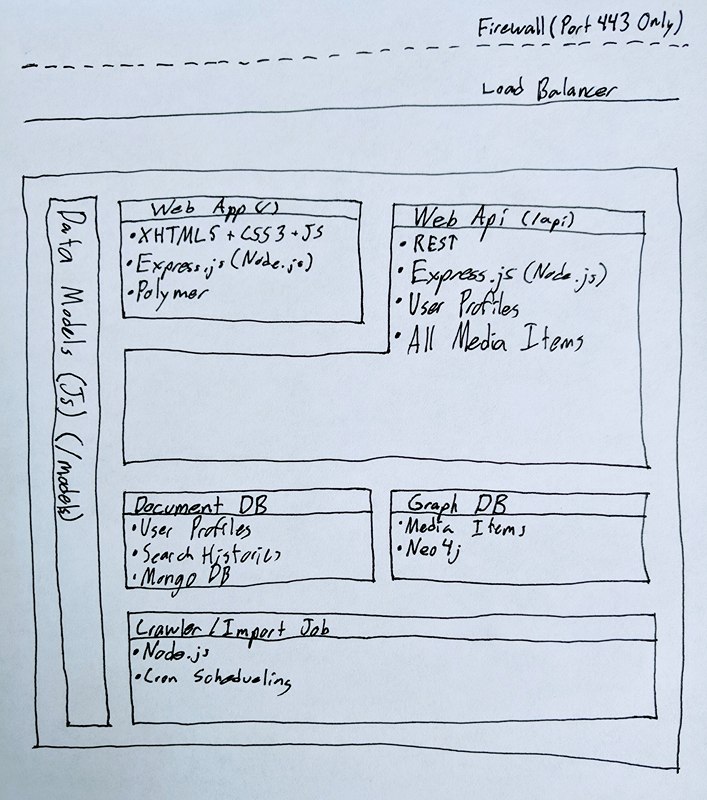 Firewall (Port 443 Only)
Load Balancer
Data Models (Js) (/models)
Web App (/)
• XHTML5 + CSS3 + JS
• Express.js (Node.js)
• Polymer
Web Api (/api)
• REST
• Express.js (Node.js)
• User Profiles
• All Media Items
Document DB
• User Profiles
• Search Histories
• Mongo DB
Graph DB
• Media Items
• Neo4j
Crawler / Import Job
• Node.js
• Cron Scheduling